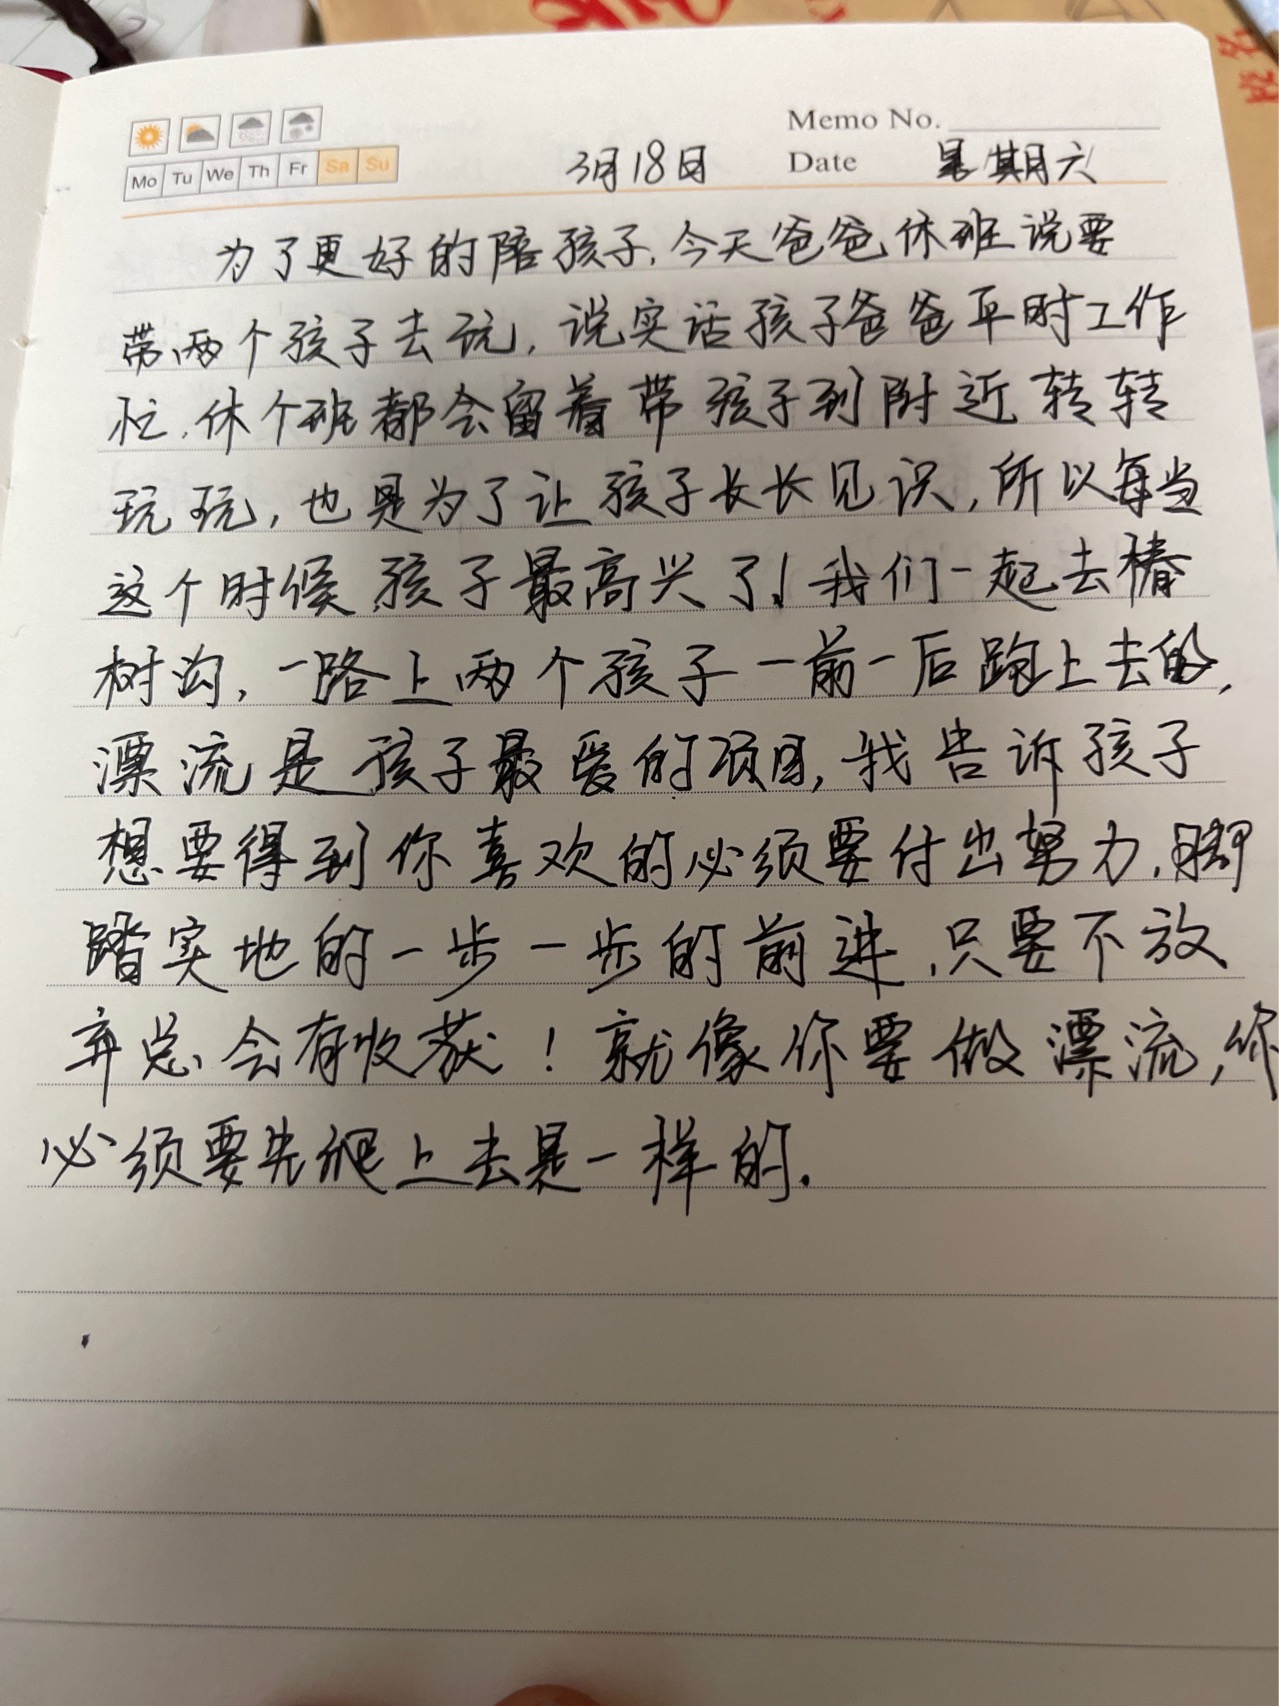 Memo No.
Mo Tu We Th Fr Sa Su
3月18日 Date 星期六
为了更好的陪孩子,今天爸爸休班说要
带两个孩子去玩,说实话孩子爸爸平时工作
忙,休个班都会留着带孩子到附近转转
玩玩,也是为了让孩子长长见识,所以每当
这个时候孩子最高兴了!我们一起去椿
树沟,一路上两个孩子一前一后跑上去的,
漂流是孩子最爱的项目,我告诉孩子
想要得到你喜欢的必须要付出努力,脚
踏实地的一步一步的前进,只要不放
弃总会有收获!就像你要做漂流,你
必须要先爬上去是一样的.